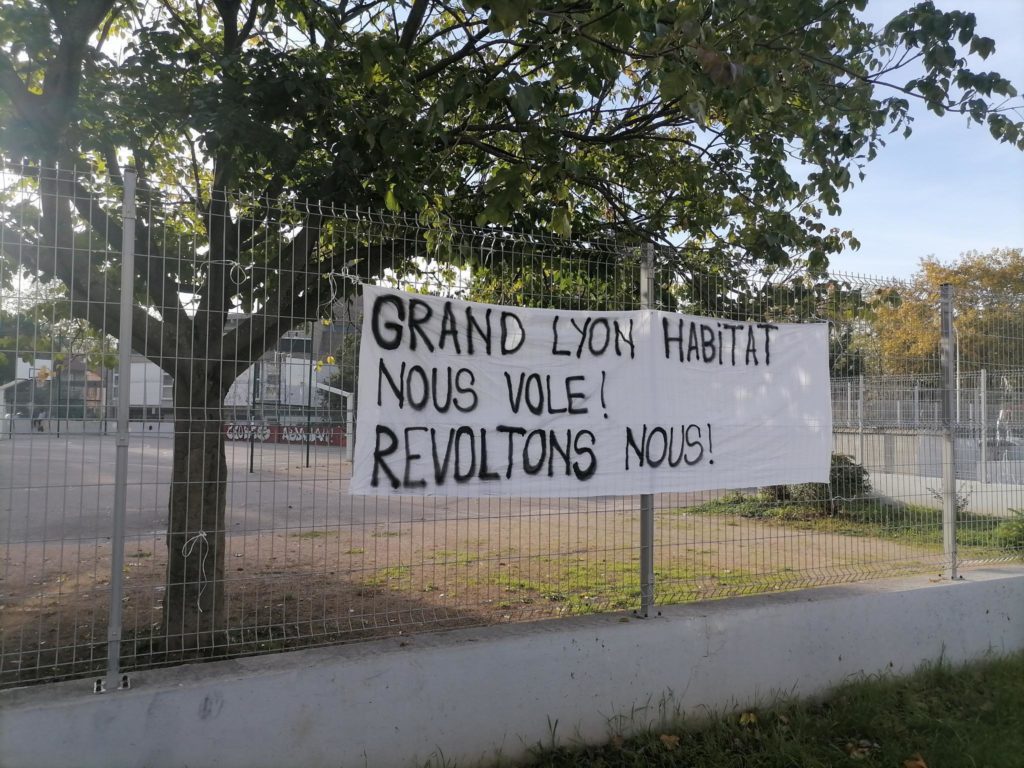 GRAND LYON HABITAT
NOUS VOLE!
REVOLTONS NOUS!